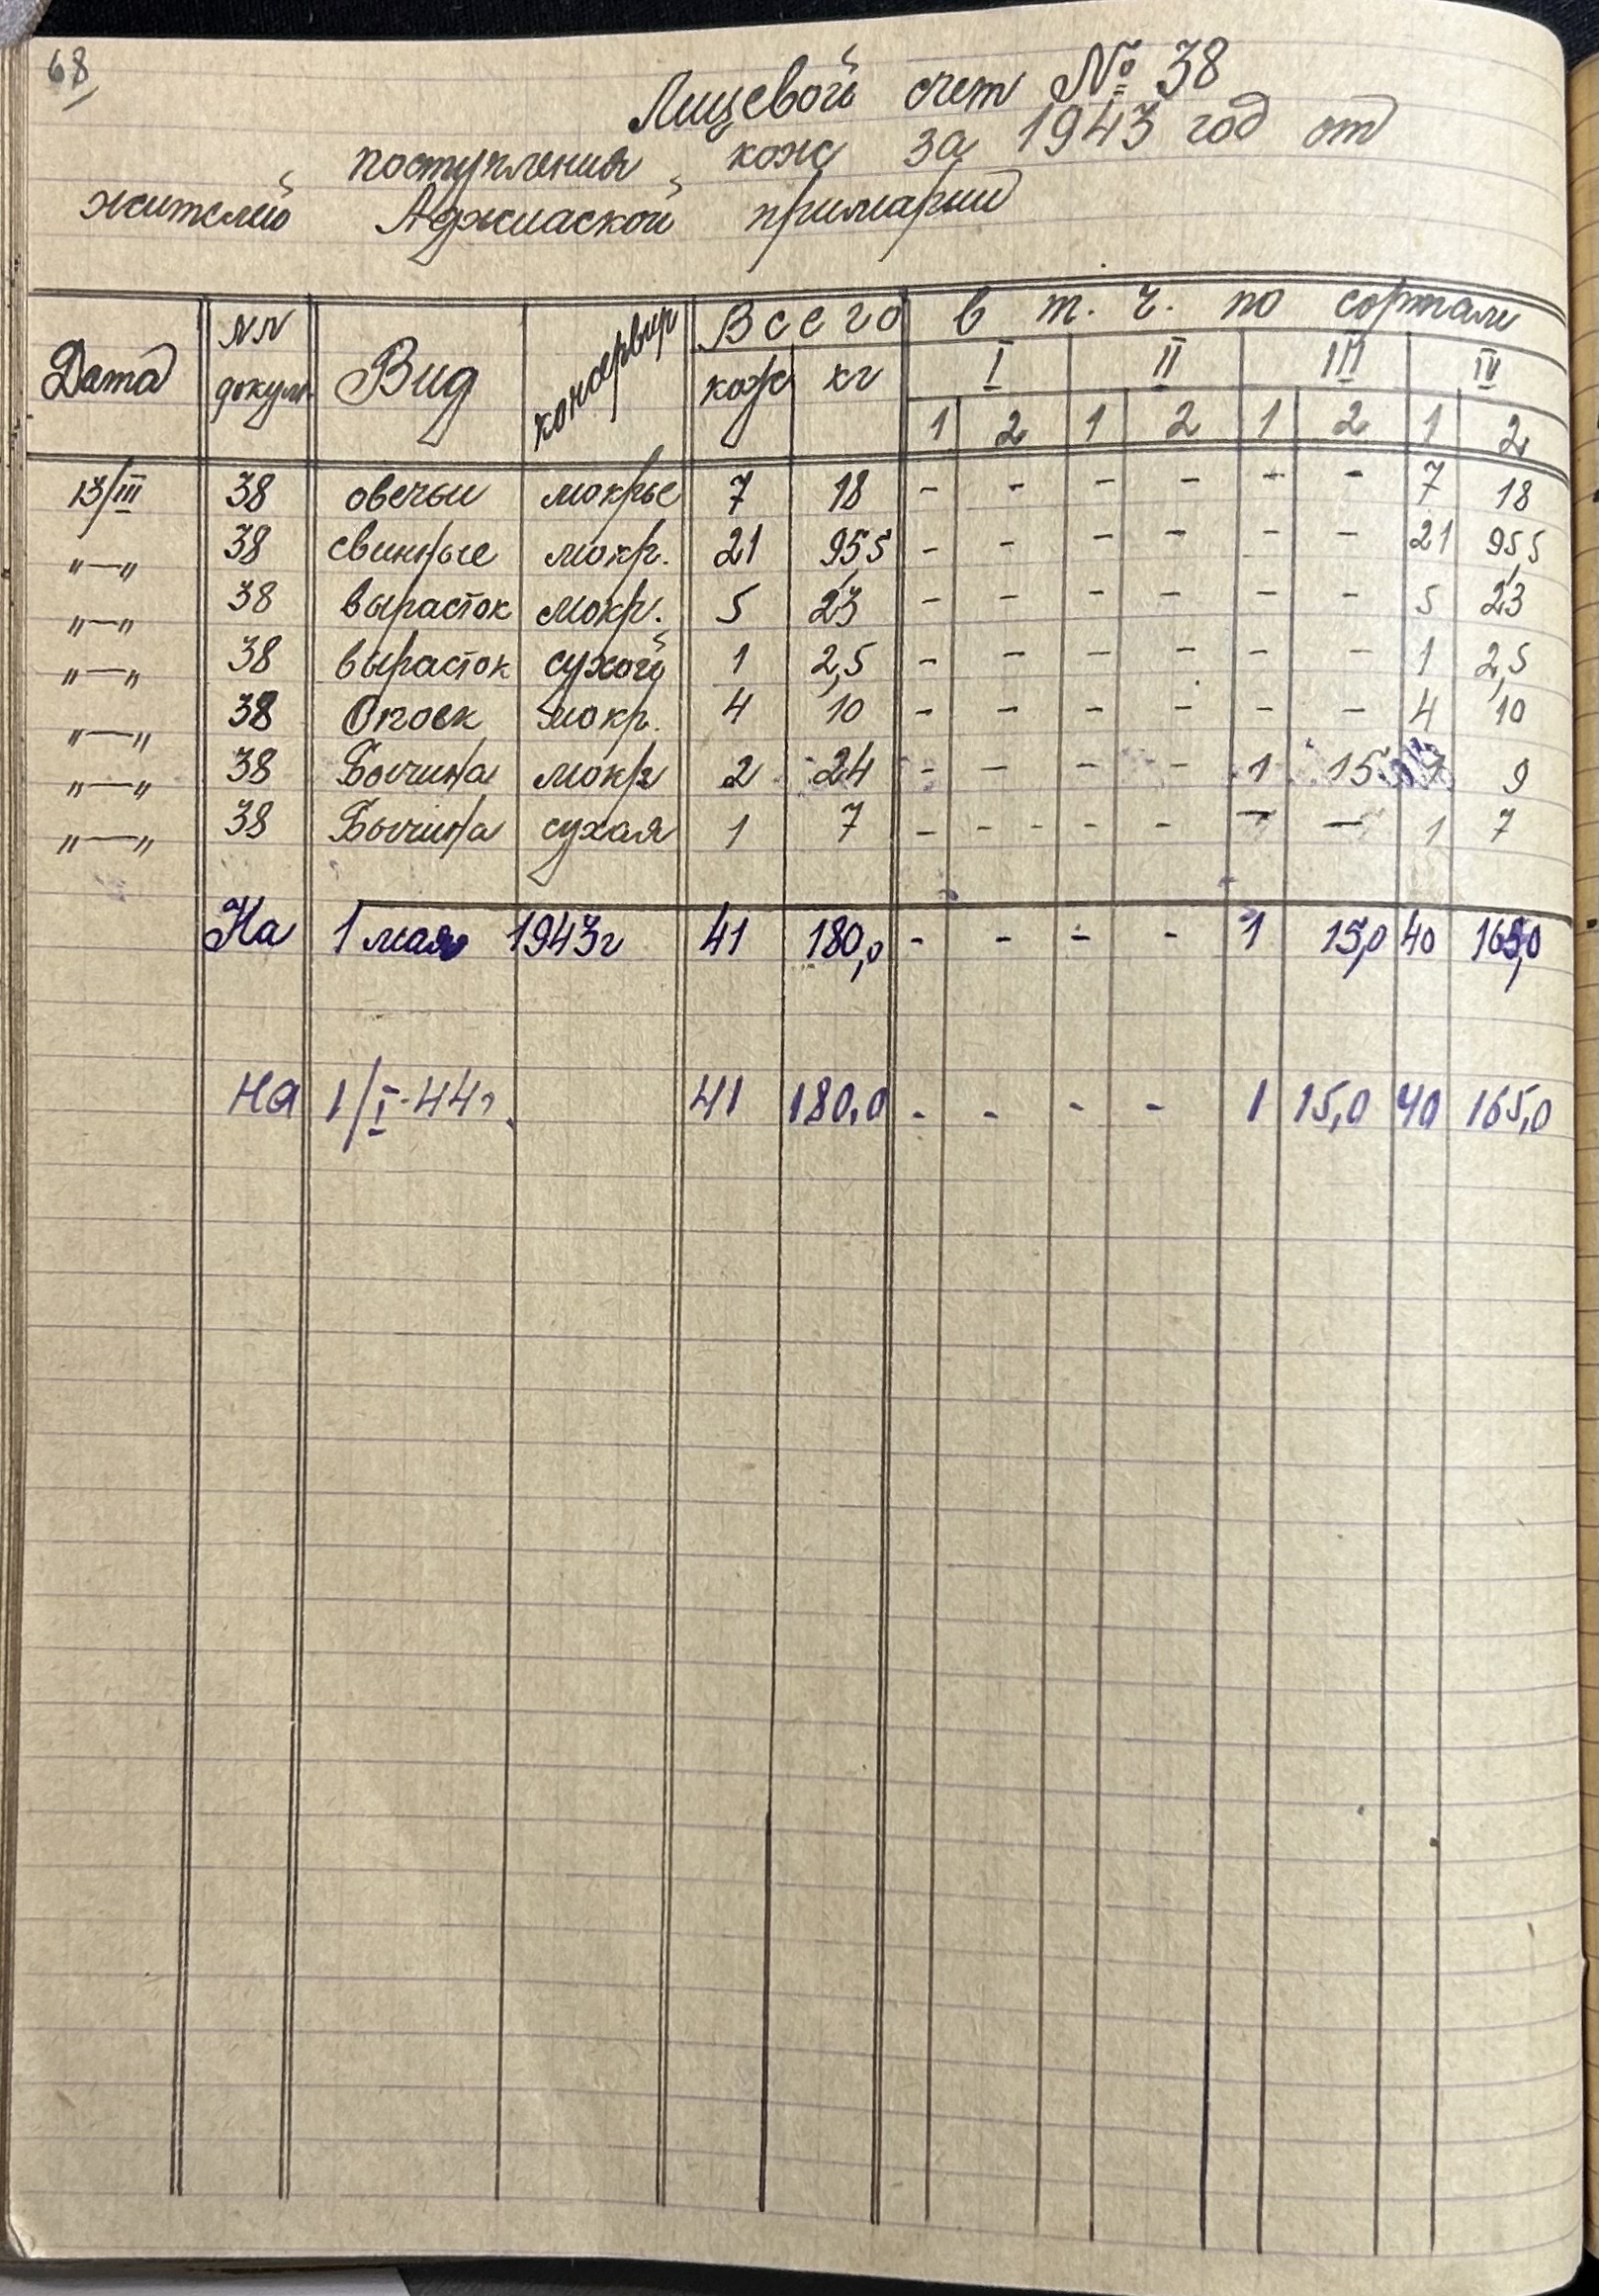 68
Лицевой счет № 38
поступления кож за 1943 год от
жителей Аджиаской примарии
Дата №№ докум. Вид консервир Всего кож кг в т. ч. по сортам I II III IV
1 2 1 2 1 2 1 2
13/III 38 овечьи мокрые 7 18 - - - - - - 7 18
"—" 38 свинные мокр. 21 95,5 - - - - - - 21 95,5
"—" 38 вырасток мокр. 5 23 - - - - - - 5 23
"—" 38 вырасток сухой 1 2,5 - - - - - - 1 2,5
"—" 38 Опоек мокр. 4 10 - - - - - - 4 10
"—" 38 Бычина мокр 2 24 - - - - 1 15 9
"—" 38 Бычина сухая 1 7 - - - - - - - 1 7
На 1 мая 1943г 41 180,0 - - - - 1 15,0 40 165,0
На 1/I-44г. 41 180,0 - - - - 1 15,0 40 165,0